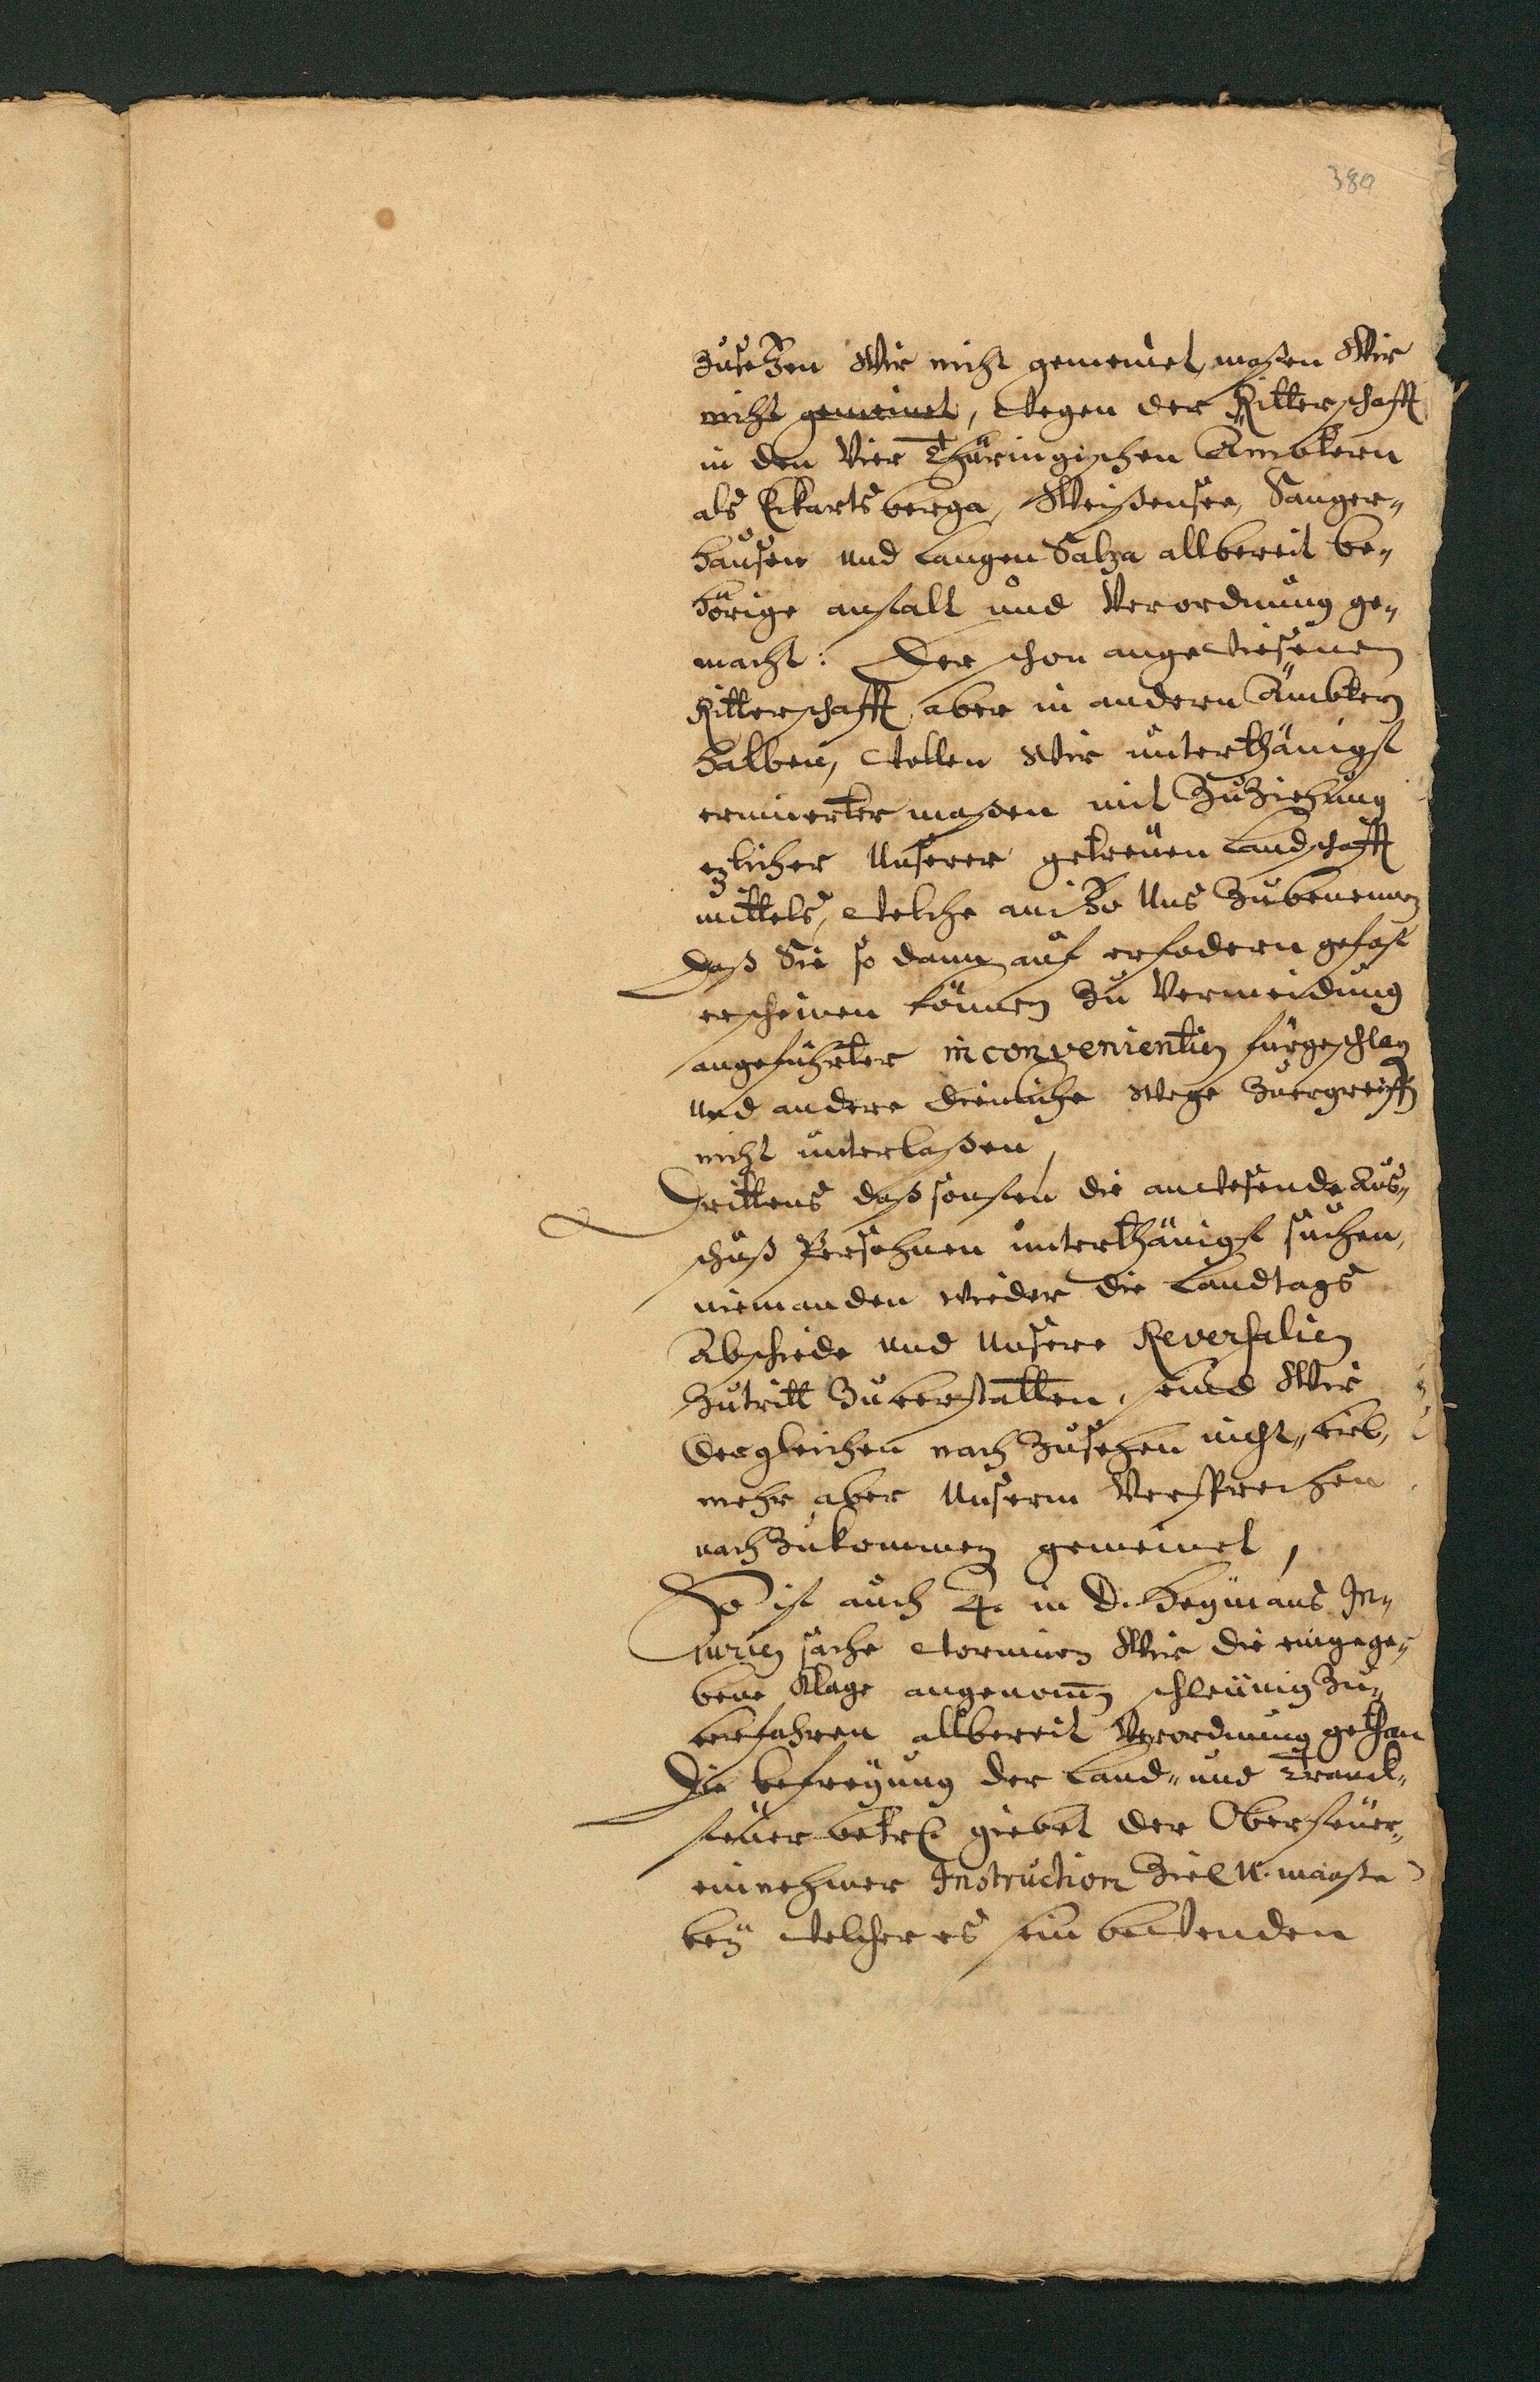 380
zusetzen Wir nicht gemeinet, maßen Wir
nicht gemeinet, wegen der Ritterschafft
in den Vier Thüringischen Ämbtern
als Eckartsberga, Weißensee, Sanger-
hausen und Langen Salza allbereit be-
hörige anstalt und Verordnung ge-
macht: Der schon angewiesenen
Ritterschafft aber in andern Ämbtern
halben, wollen Wir unterthänigst
erinnerter maßen mit Zuziehung
ezlicher Unserer getreuen Landschafft
mittels, welche anizo Uns Zubenennen
daß Sie so dann auf erfodern gefast
erscheinen können Zu Vermeidung
angeführter inconvenientien fürgeschlagen
und andere dienliche Wege Zuergreiffen
nicht unterlaßen,
Drittens daß sonsten die anwesende Aus-
schuß Persohnen unterthänigst suchen,
niemanden wieder die Landtags
Abschiede und Unsere Reversalien
Zutritt Zuverstatten, seind Wir
dergleichen nach Zusehen nicht, viel
mehr aber Unserm Versprechen
nach Zukommen gemeinet,
So ist auch 4. in D. Heÿmans In-
jurien sache worinnen Wir die eingege-
bene Klage angenommen schleünig Zu-
verfahren allbereit Verordnung gethan
Die befreÿung der Land- und Tranck-
steüer betr. giebet der Obersteüer-
einnehmer Instruction Ziel u. maaße
beÿ welcher es sein bewenden